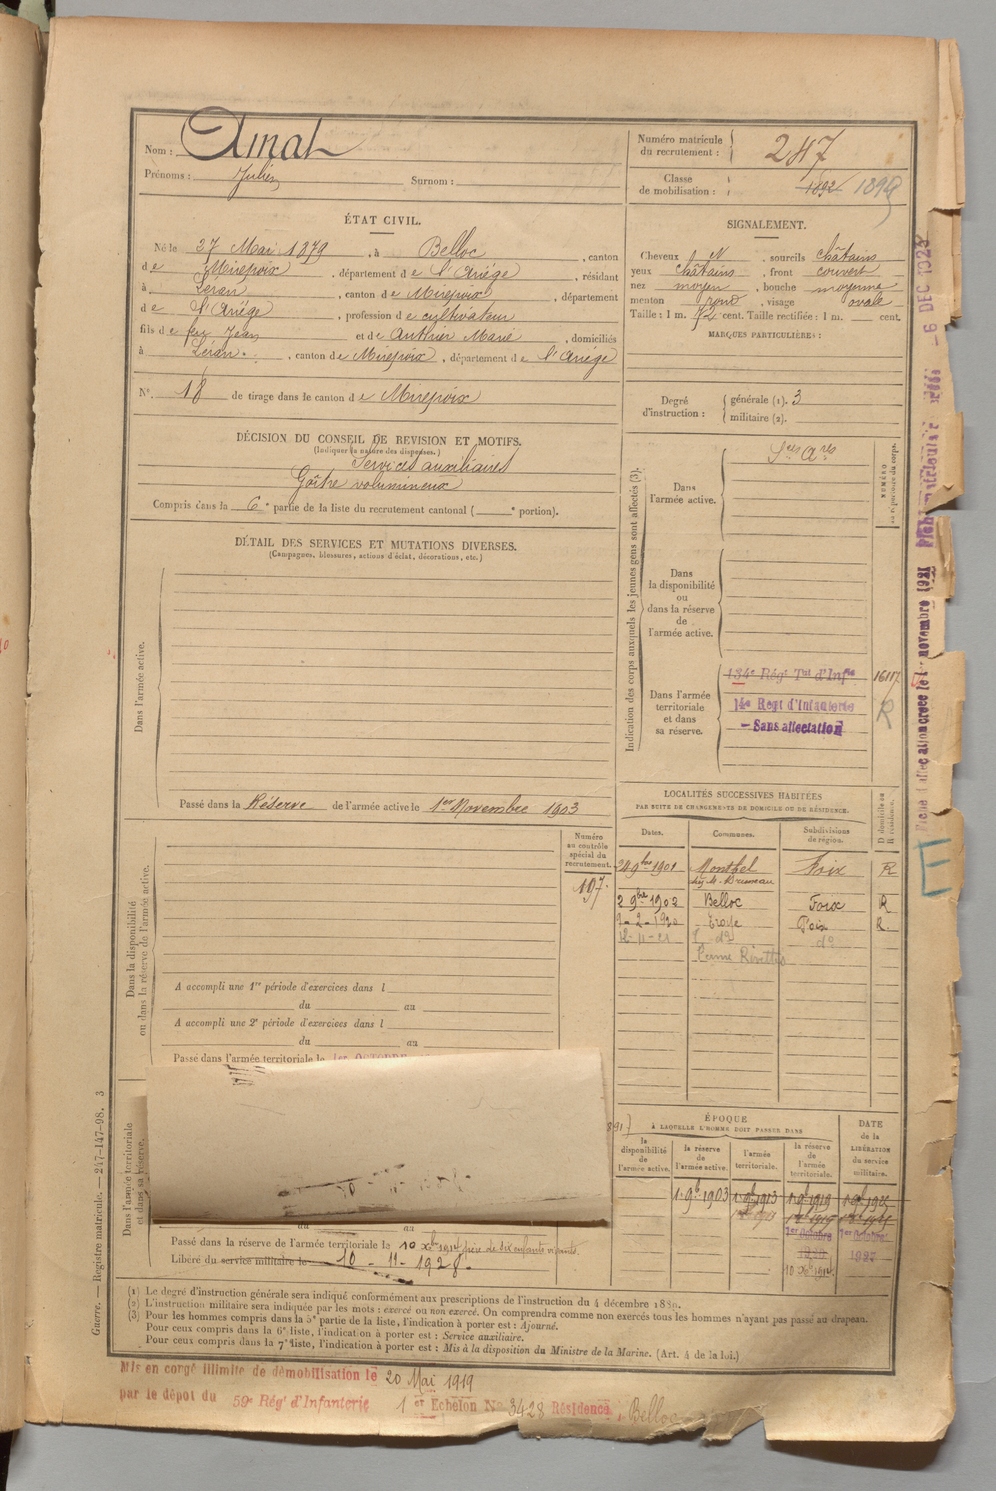 Nom : Amat
Prénoms : Julien Surnom :
Numéro matricule du recrutement : 247
Classe de mobilisation : 1892 1899
ÉTAT CIVIL.
Né le 27 Mai 1879, à Belloc, canton
de Mirepoix, département de l'Ariège, résidant
à Léran, canton de Mirepoix, département
de l'Ariège, profession de cultivateur
fils de feu Jean et de Authier Marie, domiciliés
à Léran, canton de Mirepoix, département de l'Ariège
N° 18 de tirage dans le canton de Mirepoix
SIGNALEMENT.
Cheveux N, sourcils châtains
yeux châtains, front couvert
nez moyen, bouche moyenne
menton rond, visage ovale
Taille : 1 m. 72 cent. Taille rectifiée : 1 m. cent.
MARQUES PARTICULIÈRES :
Degré d'instruction : générale (1). 3
militaire (2).
DÉCISION DU CONSEIL DE REVISION ET MOTIFS.
(Indiquer la nature des dispenses.)
Services auxiliaires
Goître volumineux
Compris dans la 6e partie de la liste du recrutement cantonal ( e portion).
DÉTAIL DES SERVICES ET MUTATIONS DIVERSES.
(Campagnes, blessures, actions d'éclat, décorations, etc.)
Dans l'armée active.
Passé dans la Réserve de l'armée active le 1er Novembre 1903
Indication des corps auxquels les jeunes gens sont affectés (3).
NUMÉRO
Dans l'armée active.
Dans la disponibilité ou dans la réserve de l'armée active.
Dans l'armée territoriale et dans sa réserve.
134e Régt Tal d'Infie 16117
14e Regt d'Infanterie R
- Sans affectation
LOCALITÉS SUCCESSIVES HABITÉES
PAR SUITE DE CHANGEMENTS DE DOMICILE OU DE RÉSIDENCE.
Dates. Communes. Subdivisions de région. D domicile ou R résidence.
24 9bre 1901 Montbel Foix R
2 9bre 1902 Belloc Foix R
9-2-1920 Foix R.
d° d°
Dans la disponibilité ou dans la réserve de l'armée active.
Numéro au contrôle spécial du recrutement.
197.
A accompli une 1re période d'exercices dans l
du au
A accompli une 2e période d'exercices dans l
du au
Passé dans l'armée territoriale le 1er OCTOBRE
Dans l'armée territoriale et dans sa réserve.
du au
Passé dans la réserve de l'armée territoriale le 10 Xbre 1914 père de six enfants vivants.
Libéré du service militaire le 10 - 11 - 1928.
ÉPOQUE
À LAQUELLE L'HOMME DOIT PASSER DANS
la disponibilité de l'armée active. la réserve de l'armée active. l'armée territoriale. la réserve de l'armée territoriale.
DATE de la LIBÉRATION du service militaire.
1. 9b 1903 1. 9b 1913 1. 9b 1919 1. 9b 1925
1er Octobre 1er Octobre
1927
10 Xbre 1914
(1) Le degré d'instruction générale sera indiqué conformément aux prescriptions de l'instruction du 4 décembre 1889.
(2) L'instruction militaire sera indiquée par les mots : exercé ou non exercé. On comprendra comme non exercés tous les hommes n'ayant pas passé au drapeau.
(3) Pour les hommes compris dans la 5e partie de la liste, l'indication à porter est : Ajourné.
Pour ceux compris dans la 6e liste, l'indication à porter est : Service auxiliaire.
Pour ceux compris dans la 7e liste, l'indication à porter est : Mis à la disposition du Ministre de la Marine. (Art. 4 de la loi.)
Guerre. — Registre matricule. — 247-147-98. 3
Mis en congé illimité de démobilisation le 20 Mai 1919
par le dépot du 59e Régt d'Infanterie 1er Echelon N° 3428 Résidence, Belloc